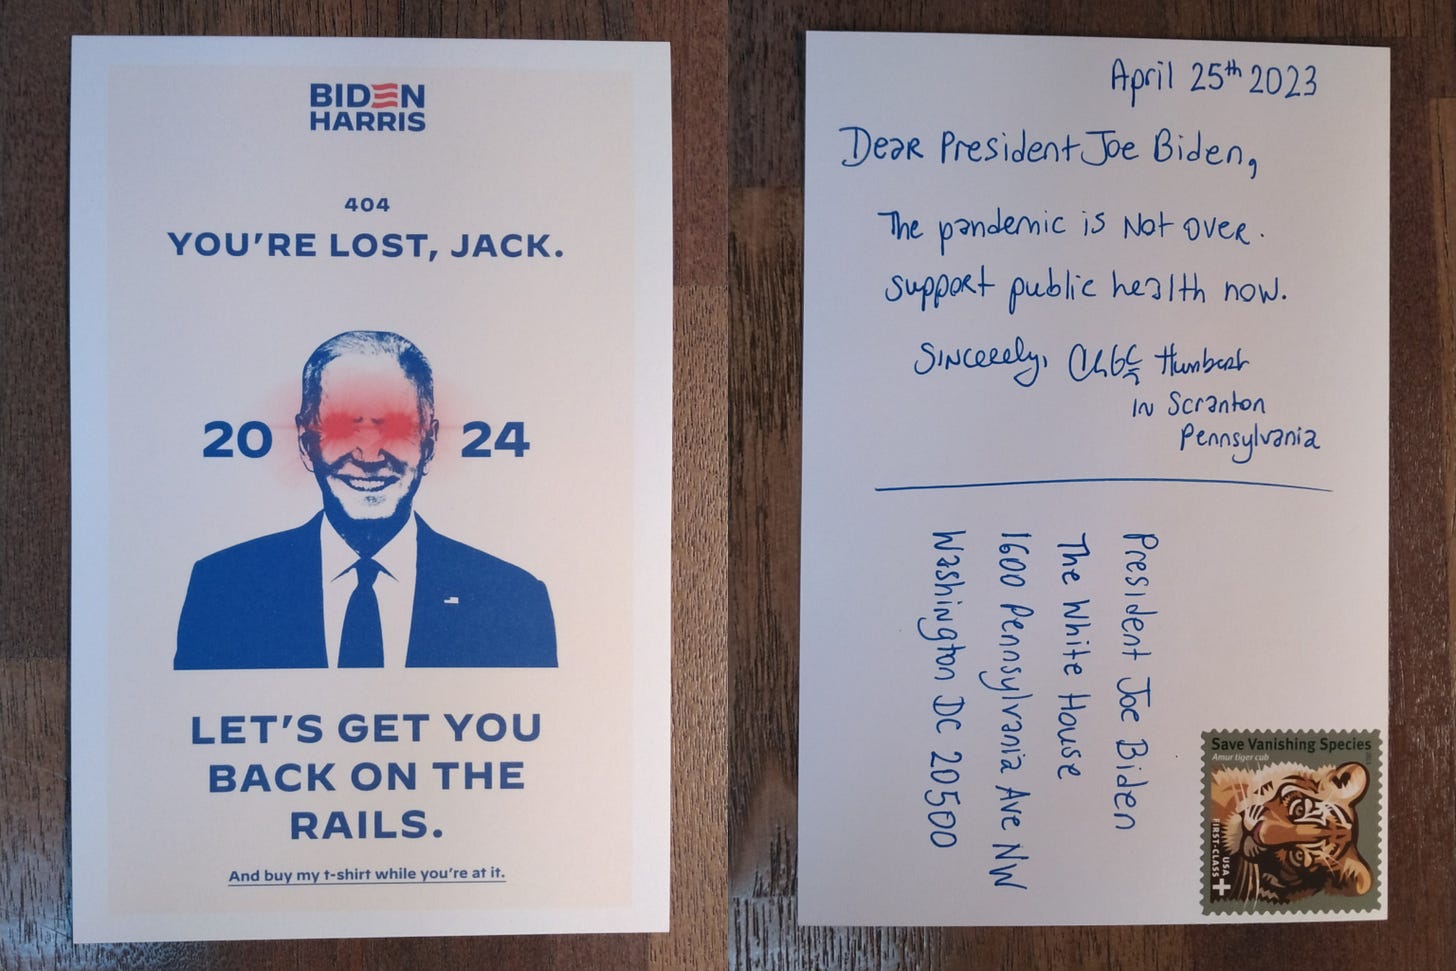 BIDEN
HARRIS
404
YOU'RE LOST, JACK.
20 24
LET'S GET YOU
BACK ON THE
RAILS.
And buy my t-shirt while you're at it.
April 25th 2023
Dear President Joe Biden,
The pandemic is Not over.
support public health now.
Sincerely, Humbert
IN Scranton
Pennsylvania
President Joe Biden
The White House
1600 Pennsylvania Ave NW
Washington DC 20500
Save Vanishing Species
Amur tiger cub
FIRST-CLASS
USA